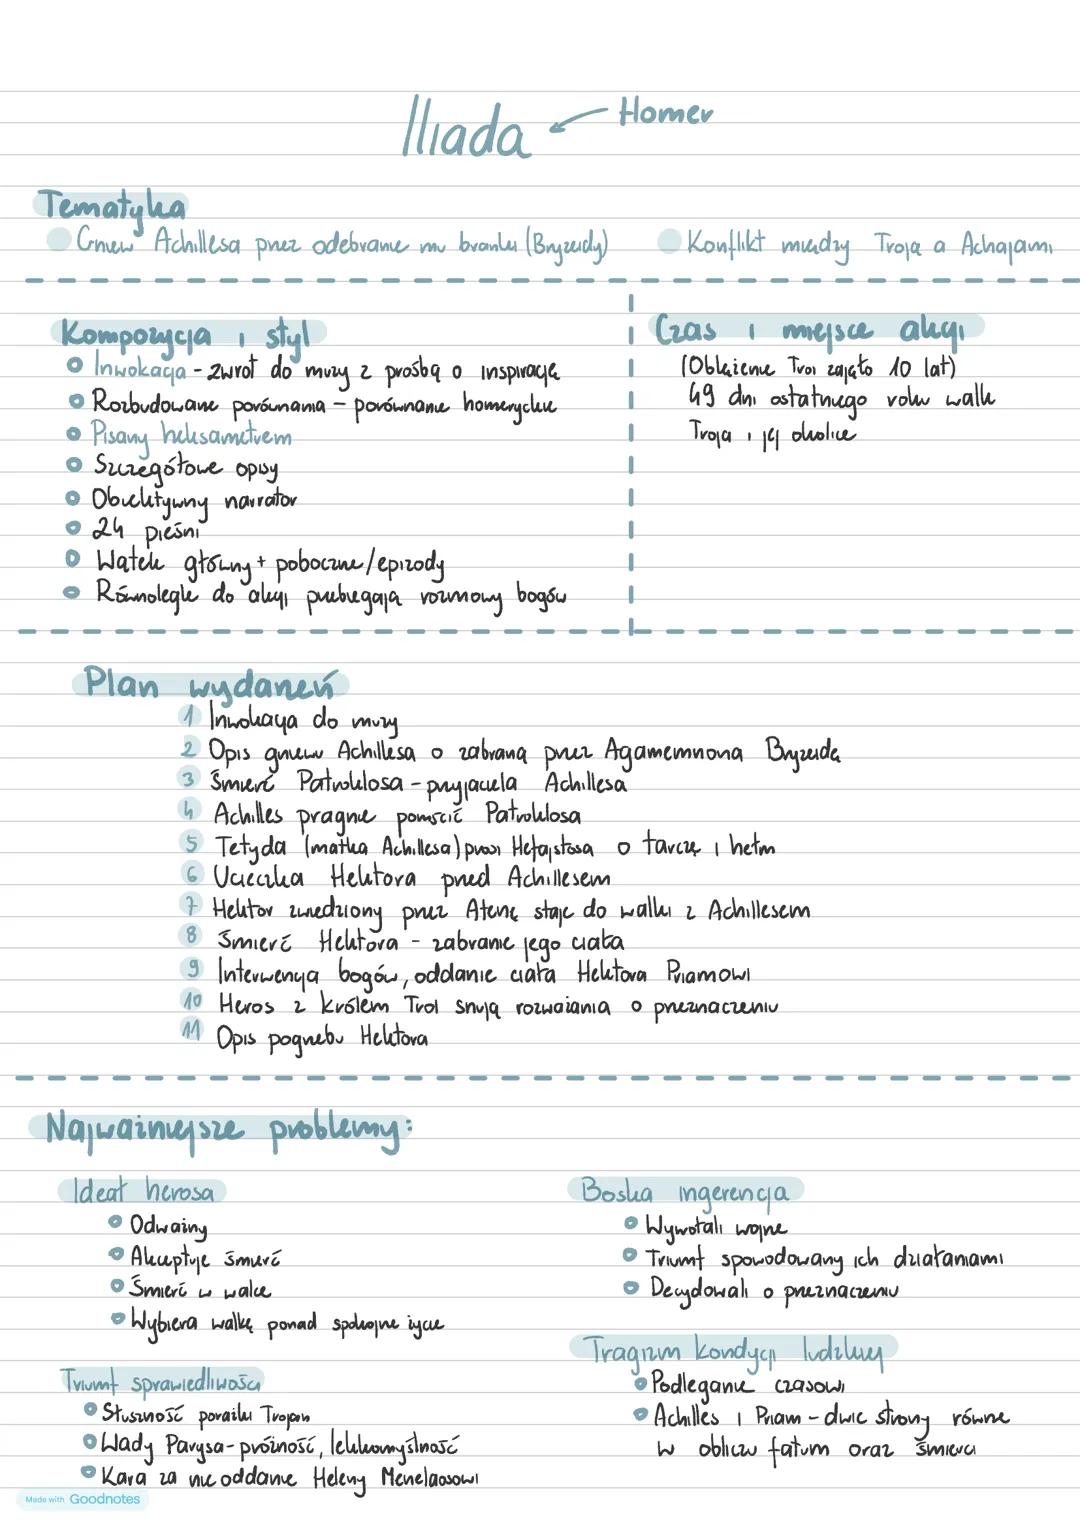 Iliada ← Homer
Tematyka
Gniew Achillesa przez odebranie mu branki (Bryzeidy)
Konflikt między Troją a Achajami
Kompozycja i styl
Inwokacja - zwrot do muzy z prośbą o inspirację
Rozbudowane porównania – porównanie homeryckie
Pisany heksametrem
Szczegółowe opisy
Obiektywny narrator
24 pieśni
Wątek główny + poboczne/epizody
Równolegle do akcji przebiegają rozmowy bogów
Czas i miejsce akcji
(Oblężenie Troi zajęło 10 lat)
49 dni ostatniego roku walk
Troja i jej okolice
Plan wydarzeń
1 Inwokacja do muzy
2 Opis gniewu Achillesa o zabraną przez Agamemnona Bryzeidę
3 Śmierć Patroklosa - przyjaciela Achillesa
4 Achilles pragnie pomścić Patroklosa
5 Tetyda (matka Achillesa) prosi Hefajstosa o tarczę i hełm
6 Ucieczka Hektora przed Achillesem
7 Hektor zwiedziony przez Atenę staje do walki z Achillesem
8 Śmierć Hektora - zabranie jego ciała
9 Interwencja bogów, oddanie ciała Hektora Priamowi
10 Heros z królem Troi snują rozważania o przeznaczeniu
11 Opis pogrzebu Hektora
Najważniejsze problemy:
Ideał herosa
Odważny
Akceptuje śmierć
Śmierć w walce
Wybiera walkę ponad spokojne życie
Triumf sprawiedliwości
Słuszność porażki Trojan
Wady Parysa - próżność, lekkomyślność
Kara za nie oddanie Heleny Menelaosowi
Boska ingerencja
Wywołali wojnę
Triumf spowodowany ich działaniami
Decydowali o przeznaczeniu
Tragizm kondycji ludzkiej
Podleganie czasowi
Achilles i Priam - dwie strony równe
w obliczu fatum oraz śmierci
Made with Goodnotes